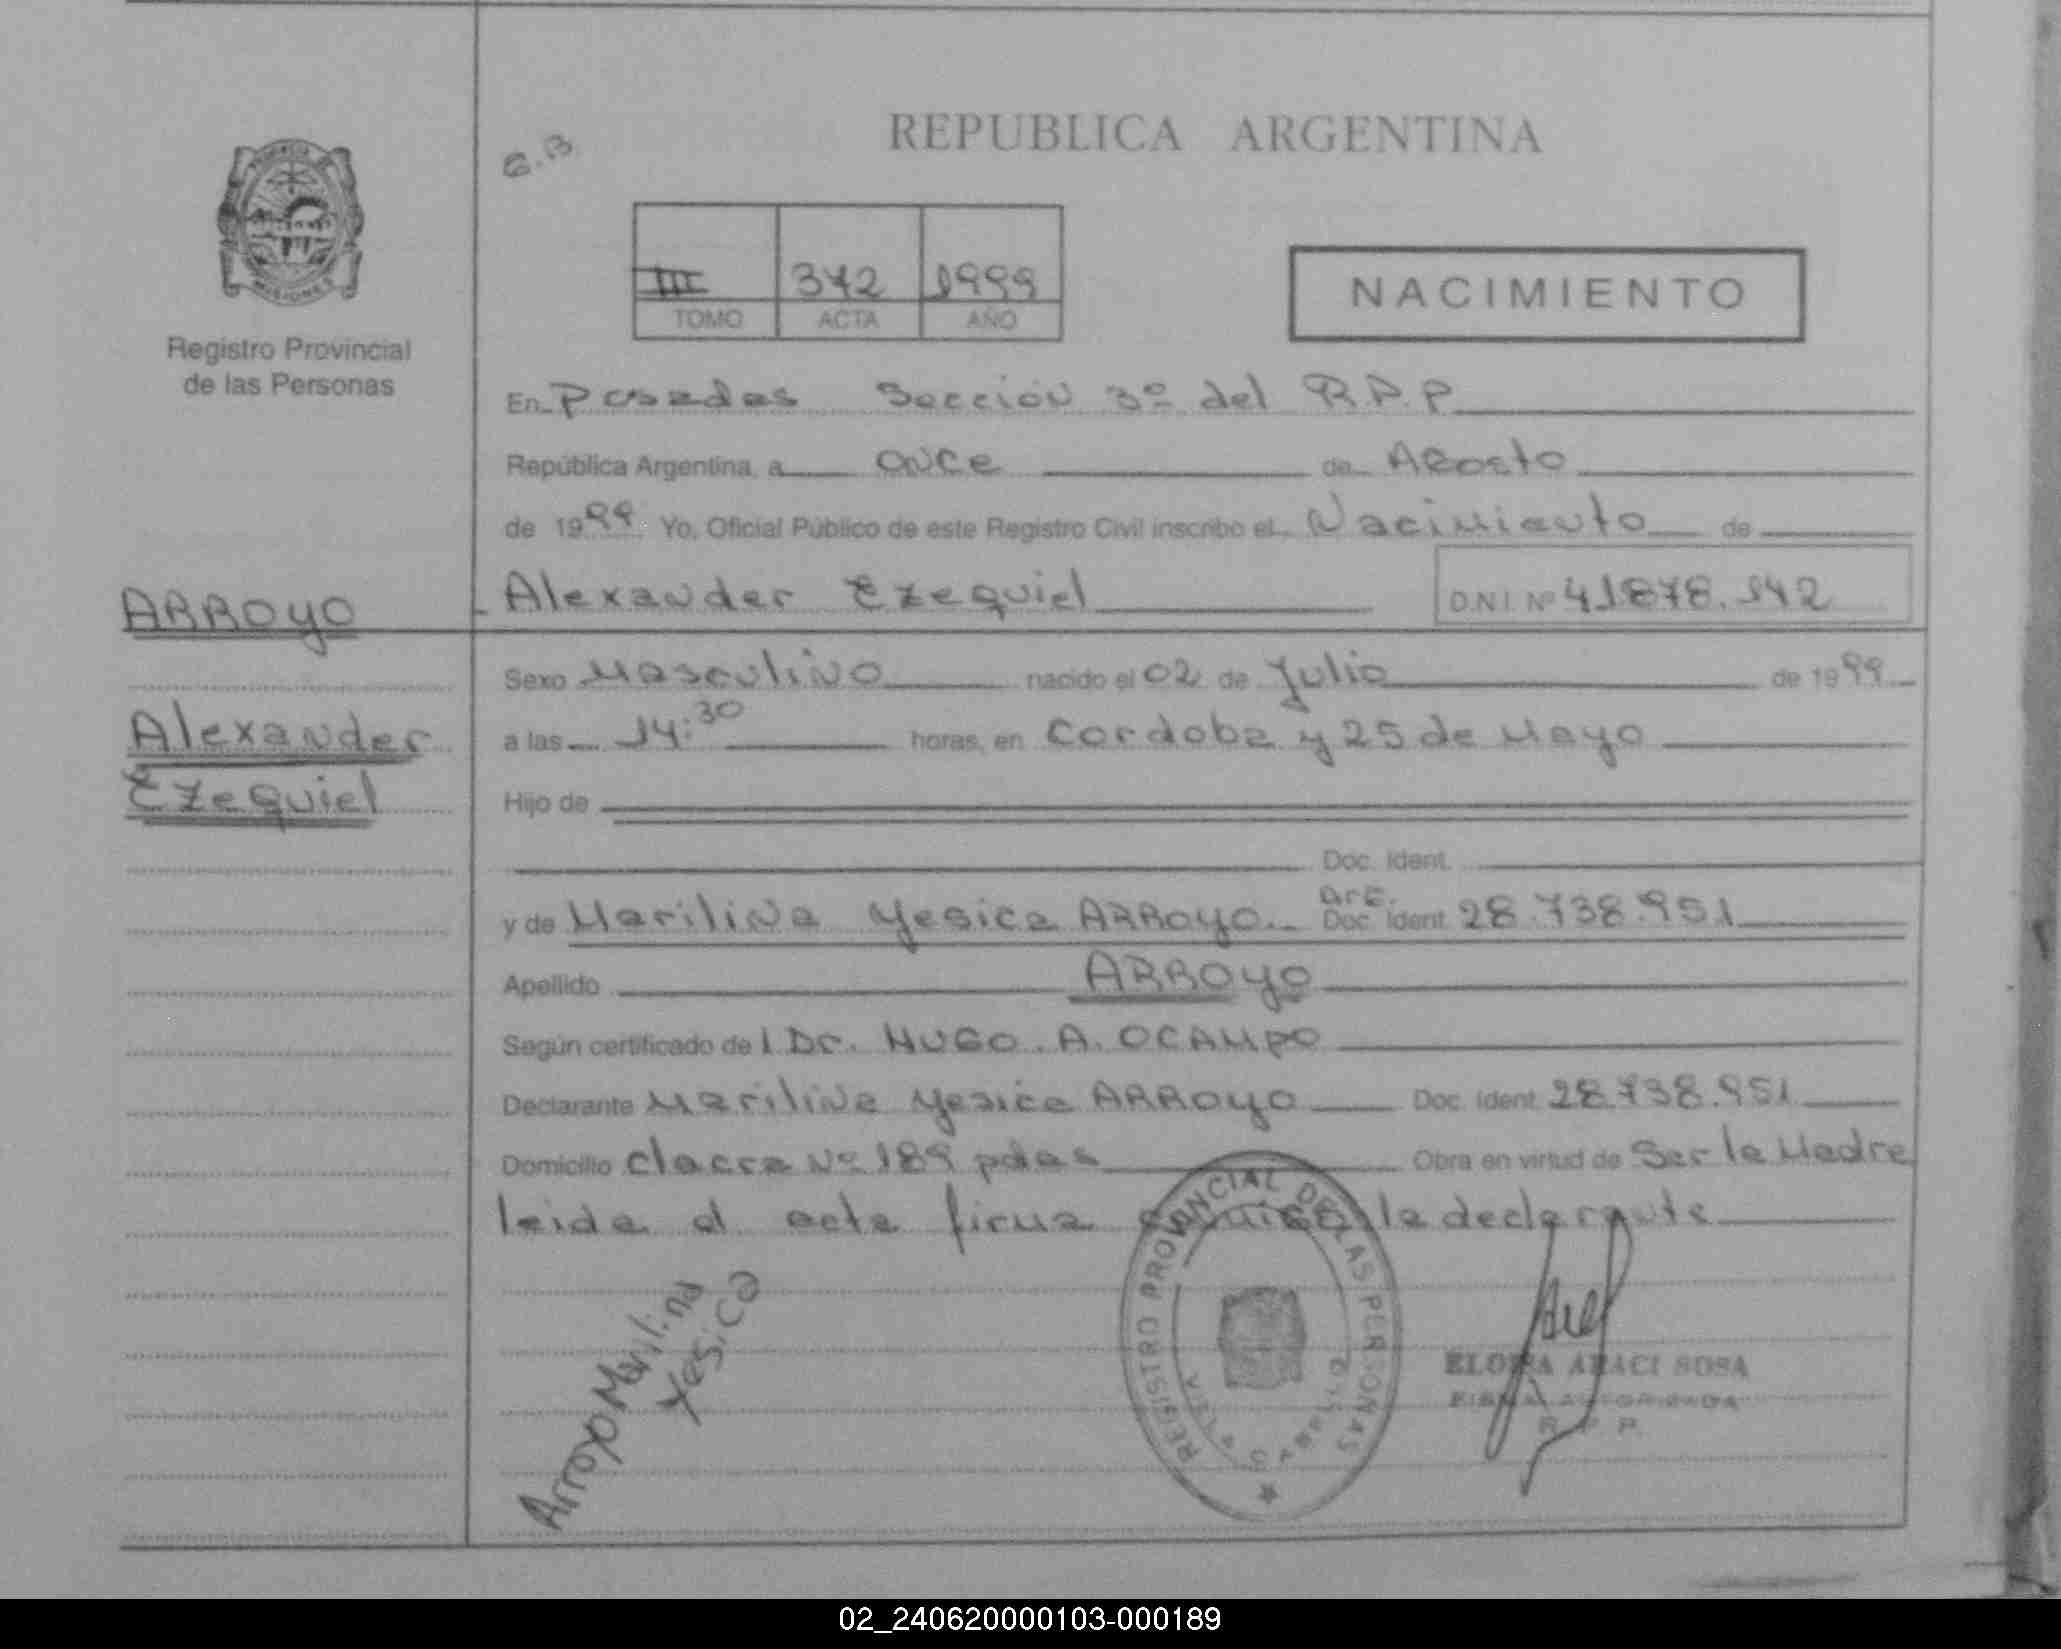 REPUBLICA ARGENTINA
G.B.
III 372 1999
TOMO ACTA AÑO
NACIMIENTO
PROVINCIA DE
MISIONES
Registro Provincial
de las Personas
En Posadas Sección 3º del R.P.P
República Argentina, a once de Agosto
de 1999 Yo, Oficial Público de este Registro Civil inscribo el Nacimiento de
ARROYO
Alexander Ezequiel D.N.I. Nº 41878.142
Sexo Masculino nacido el 02 de Julio de 1999
Alexander
a las 14:30 horas, en Cordoba y 25 de Mayo
Ezequiel
Hijo de
Doc. Ident.
y de Marilina Yesica ARROYO Arg. Doc. Ident. 28.738.951
Apellido ARROYO
Según certificado de l Dr. HUGO. A. OCAMPO
Declarante Marilina Yesica ARROYO Doc. Ident. 28.738.951
Domicilio chacra Nº 189 pdas Obra en virtud de Ser la Madre
leida el acta firma la declarante
Arroyo Marilina
Yesica
REGISTRO PROVINCIAL DE LAS PERSONAS
ARACI SOSA
FIRMA AUTORIZADA
R. P. P.
02_240620000103-000189